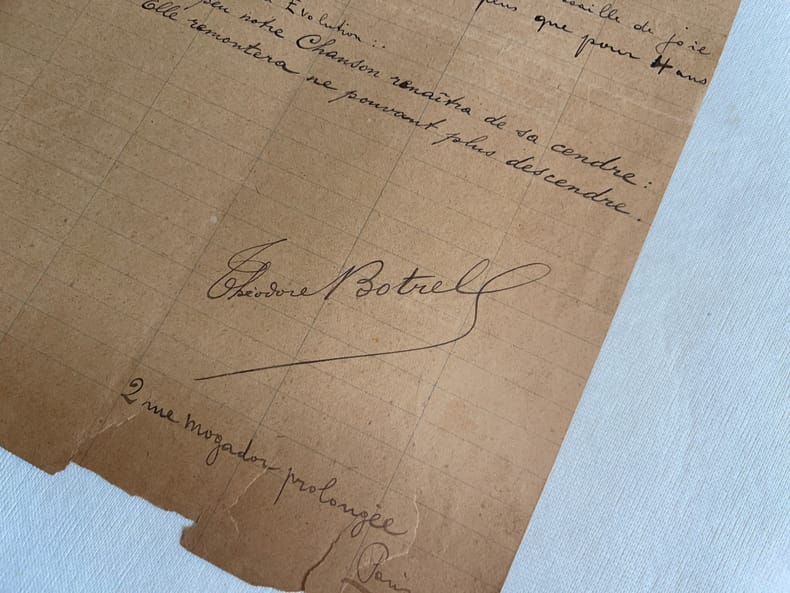 de joie
plus que pour 4 ans
Évolution :
peu notre Chanson renaîtra de sa cendre :
Elle remontera ne pouvant plus descendre.
Théodore Botrel
2 rue mogador prolongée
Paris